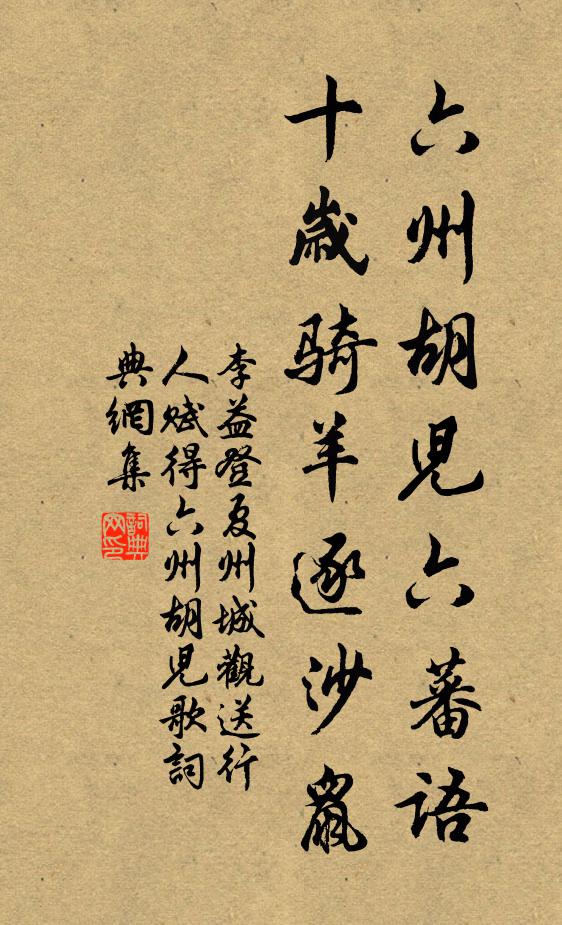 六州胡兒六蕃語
十歲騎羊逐沙鼠
李益登夏州城觀送行
人賦得六州胡兒歌詞
典網集
詞典
网印